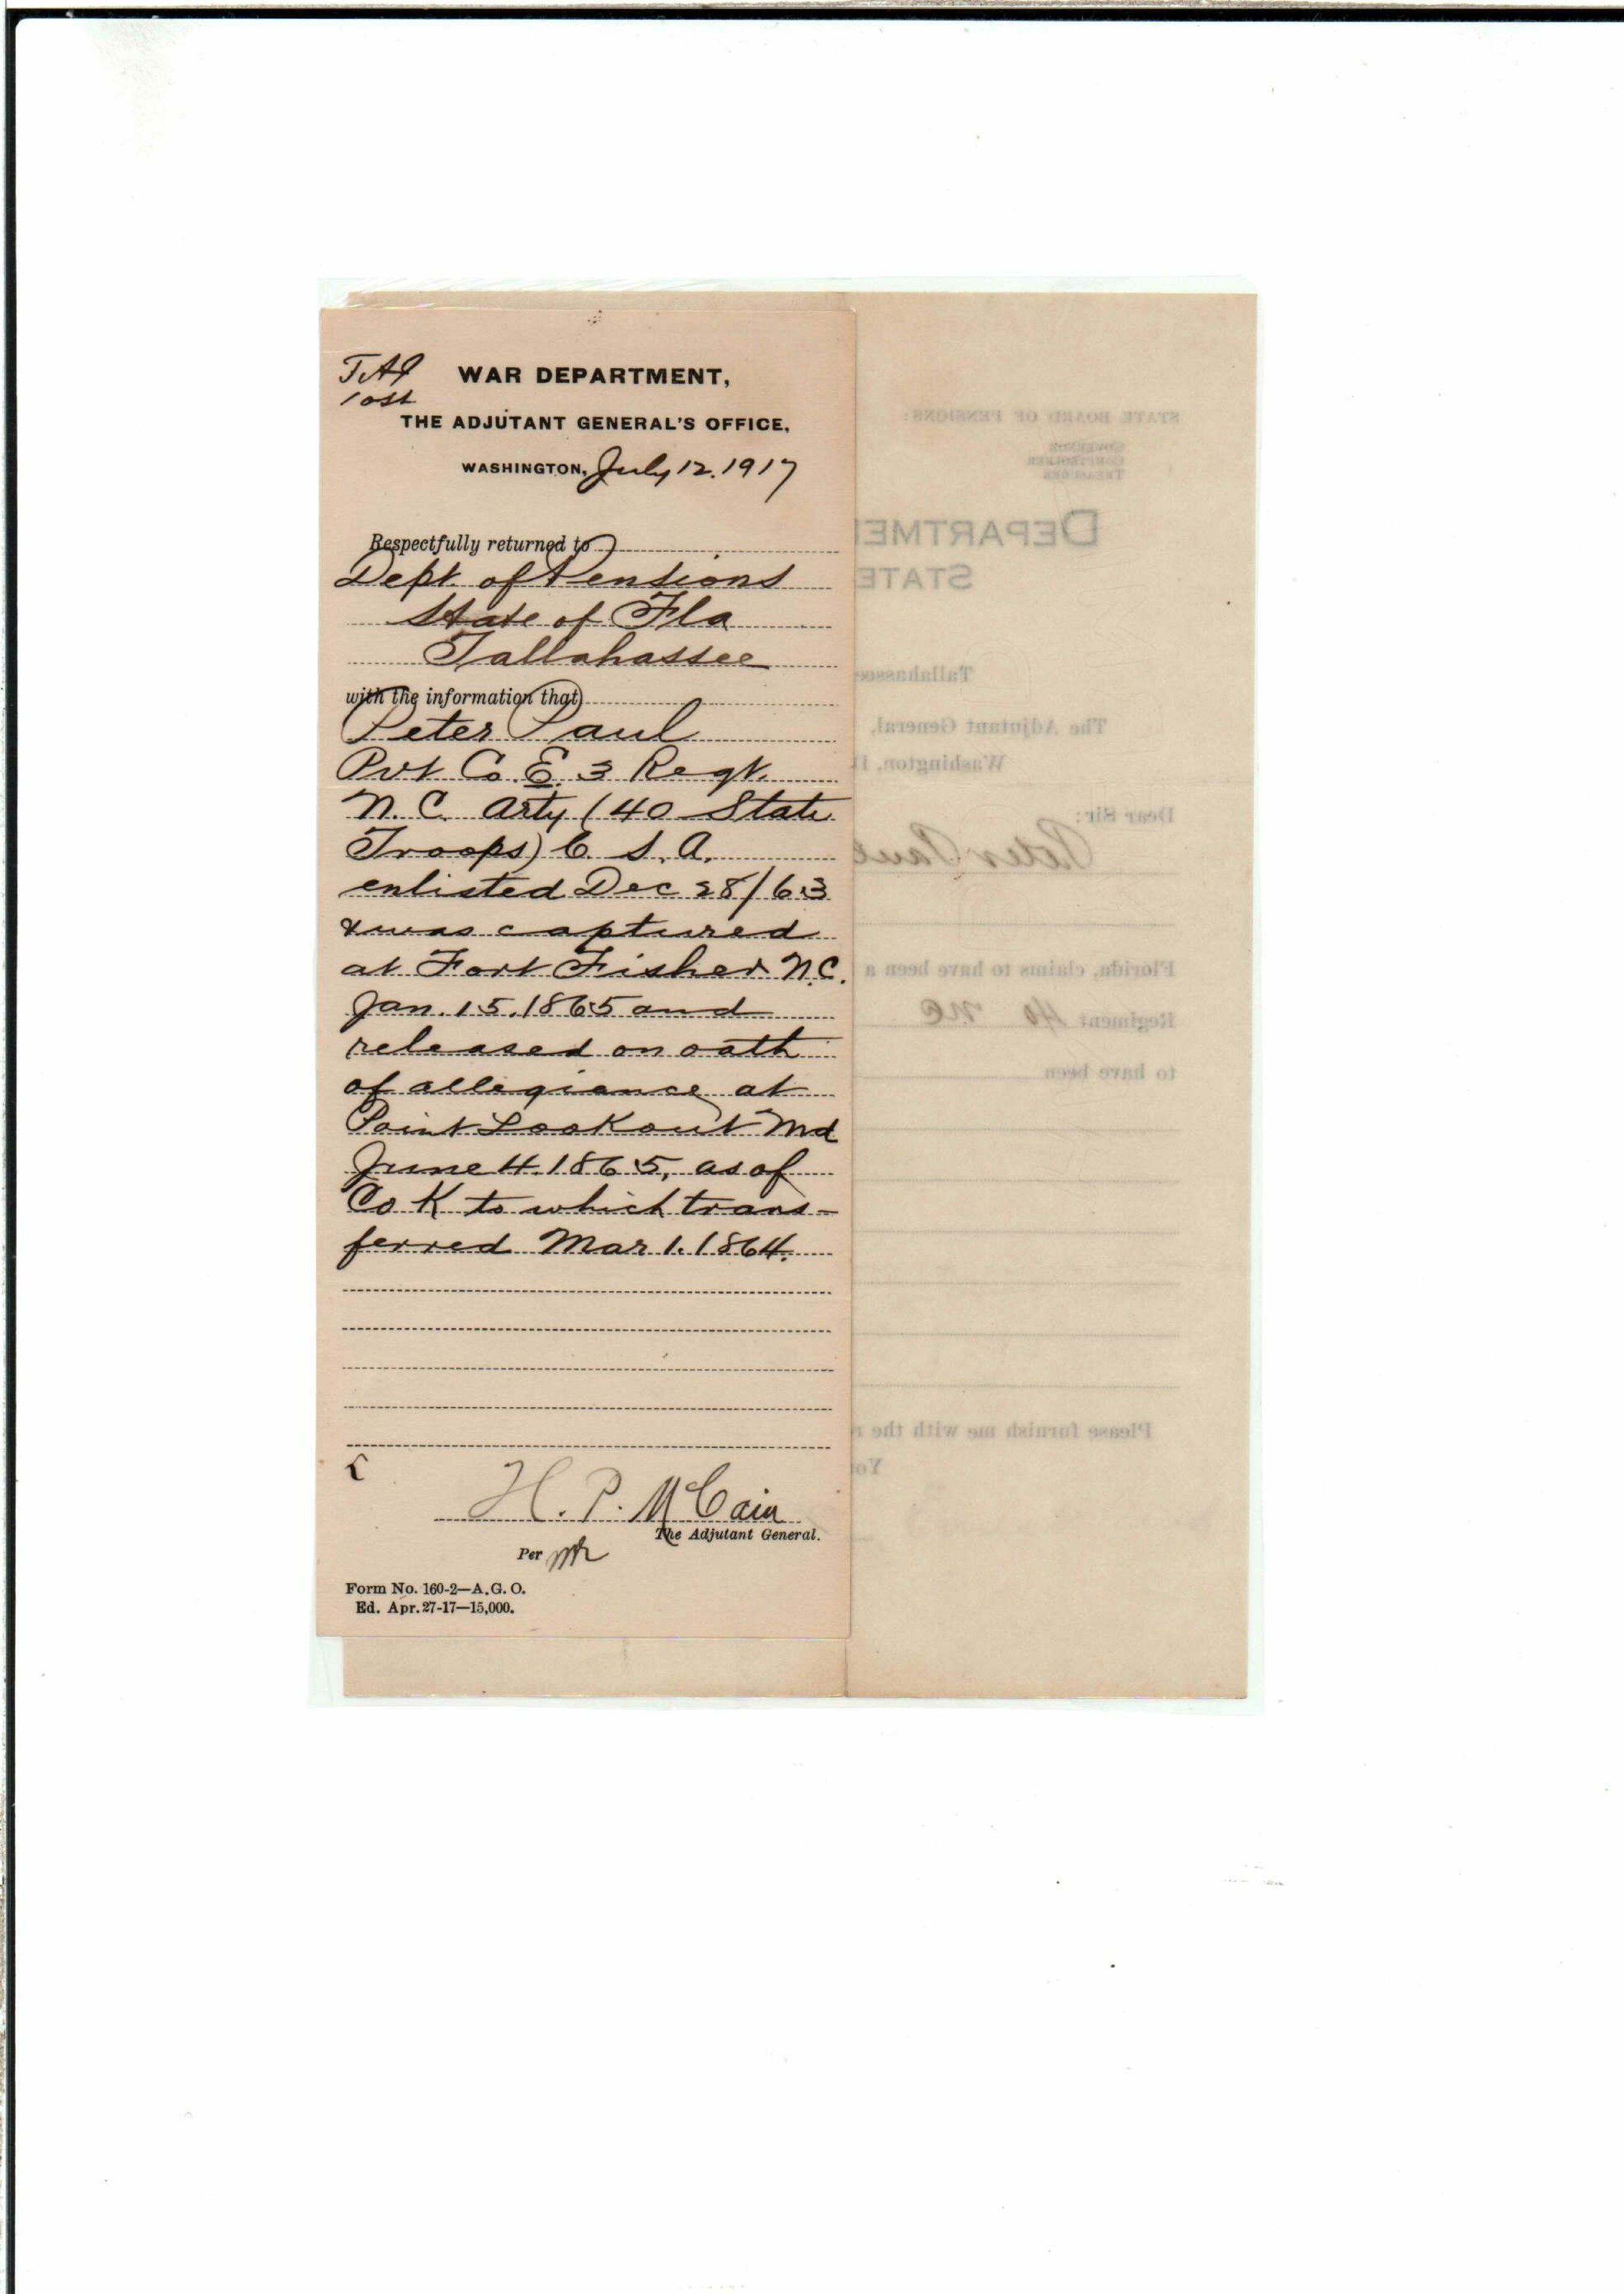 WAR DEPARTMENT,
THE ADJUTANT GENERAL'S OFFICE,
WASHINGTON, July 12. 1917
Respectfully returned to
Dept. of Pensions
State of Fla
Tallahassee
with the information that
Peter Paul
Pvt Co. E. 3 Regt.
N. C. Arty (40 State
Troops) C. S. A.
enlisted Dec 28/63
& was captured
at Fort Fisher N.C.
Jan. 15. 1865 and
released on oath
of allegiance at
Point Lookout Md
June 4. 1865, as of
Co K to which trans-
ferred Mar 1. 1864.
H. P. McCain
The Adjutant General.
Per
Form No. 160-2—A.G.O.
Ed. Apr. 27-17—15,000.
STATE BOARD OF PENSIONS:
GOVERNOR
COMPTROLLER
TREASURER
DEPARTME
STATE
Tallahassee
The Adjutant General,
Washington,
Dear Sir:
Peter Paul
Florida, claims to have been a
Regiment 40 NC
to have been
Please furnish me with the
Yo